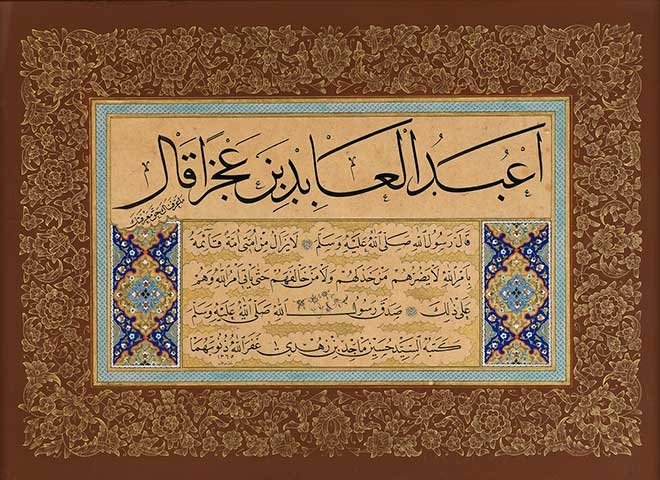 اعبد العابدين عجزا قال
قال رسول الله صلى الله عليه وسلم لا يزال من امتي امة قائمة
بامر الله لا يضرهم من خذلهم ولا من خالفهم حتى ياتي امر الله وهم
على ذلك صدق رسول الله صلى الله عليه وسلم
كتبه السيد حسين ماجد بن زهدي غفر الله ذنوبهما